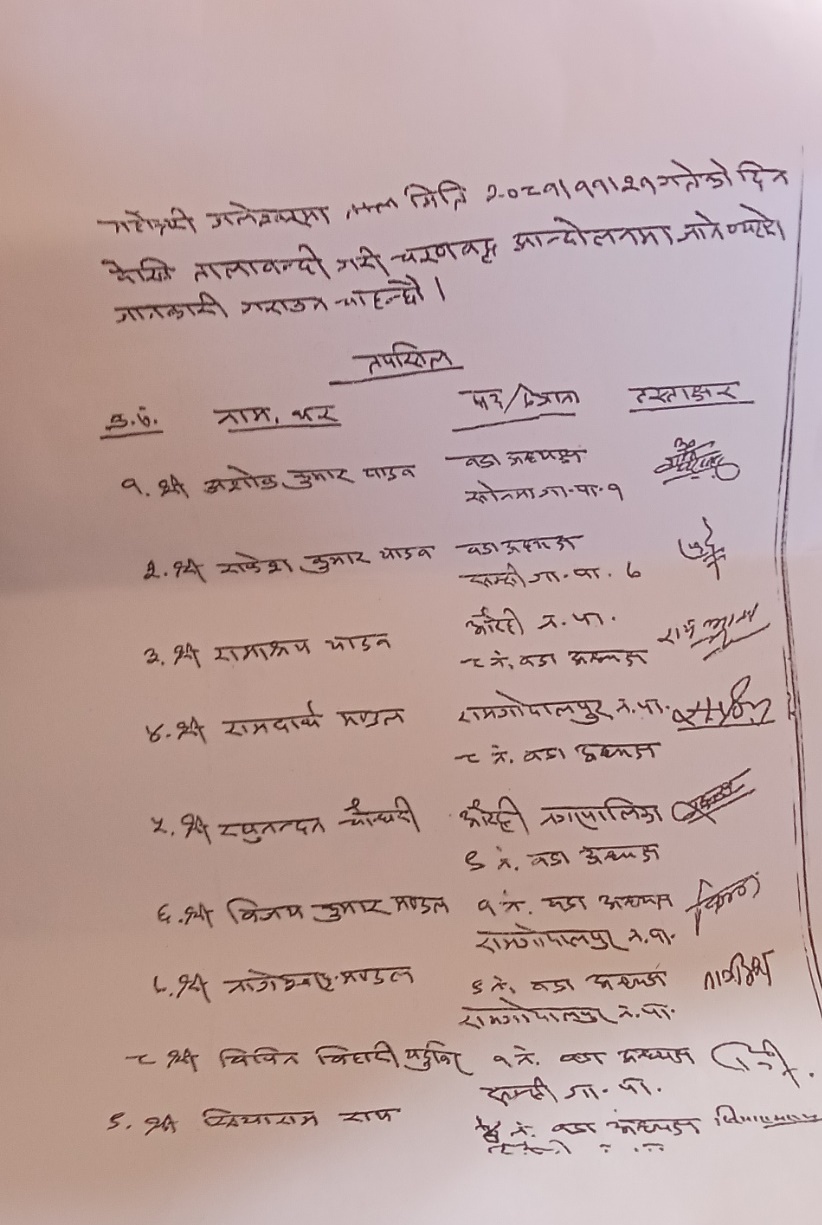 मिति २०८१।११।२१ गतेको दिन
देखि तालाबन्दी गरी चरणबद्ध आन्दोलनमा जाने
जानकारी गराउन चाहन्छौं ।
तपसिल
क्र.सं. नाम, थर पद/ठेगाना हस्ताक्षर
१. श्री अशोक कुमार यादव वडा अध्यक्ष
सोनमा गा.पा. १
२. श्री राकेश कुमार यादव वडा अध्यक्ष
साम्सी गा.पा. ७
३. श्री रामाश्रय यादव औरही न.पा.
८ नं. वडा अध्यक्ष
४. श्री मण्डल रामगोपालपुर न.पा.
८ नं. वडा अध्यक्ष
५. श्री रघुनन्दन चौधरी औरही
९ नं. वडा अध्यक्ष
६. श्री विजय कुमार मण्डल १ नं. वडा अध्यक्ष
रामगोपालपुर न.पा.
७. श्री मण्डल ९ नं. वडा अध्यक्ष
रामगोपालपुर न.पा.
८ श्री विपिन विहारी १ नं. वडा अध्यक्ष
साम्सी गा.पा.
९. श्री सियाराम राय नं. वडा अध्यक्ष